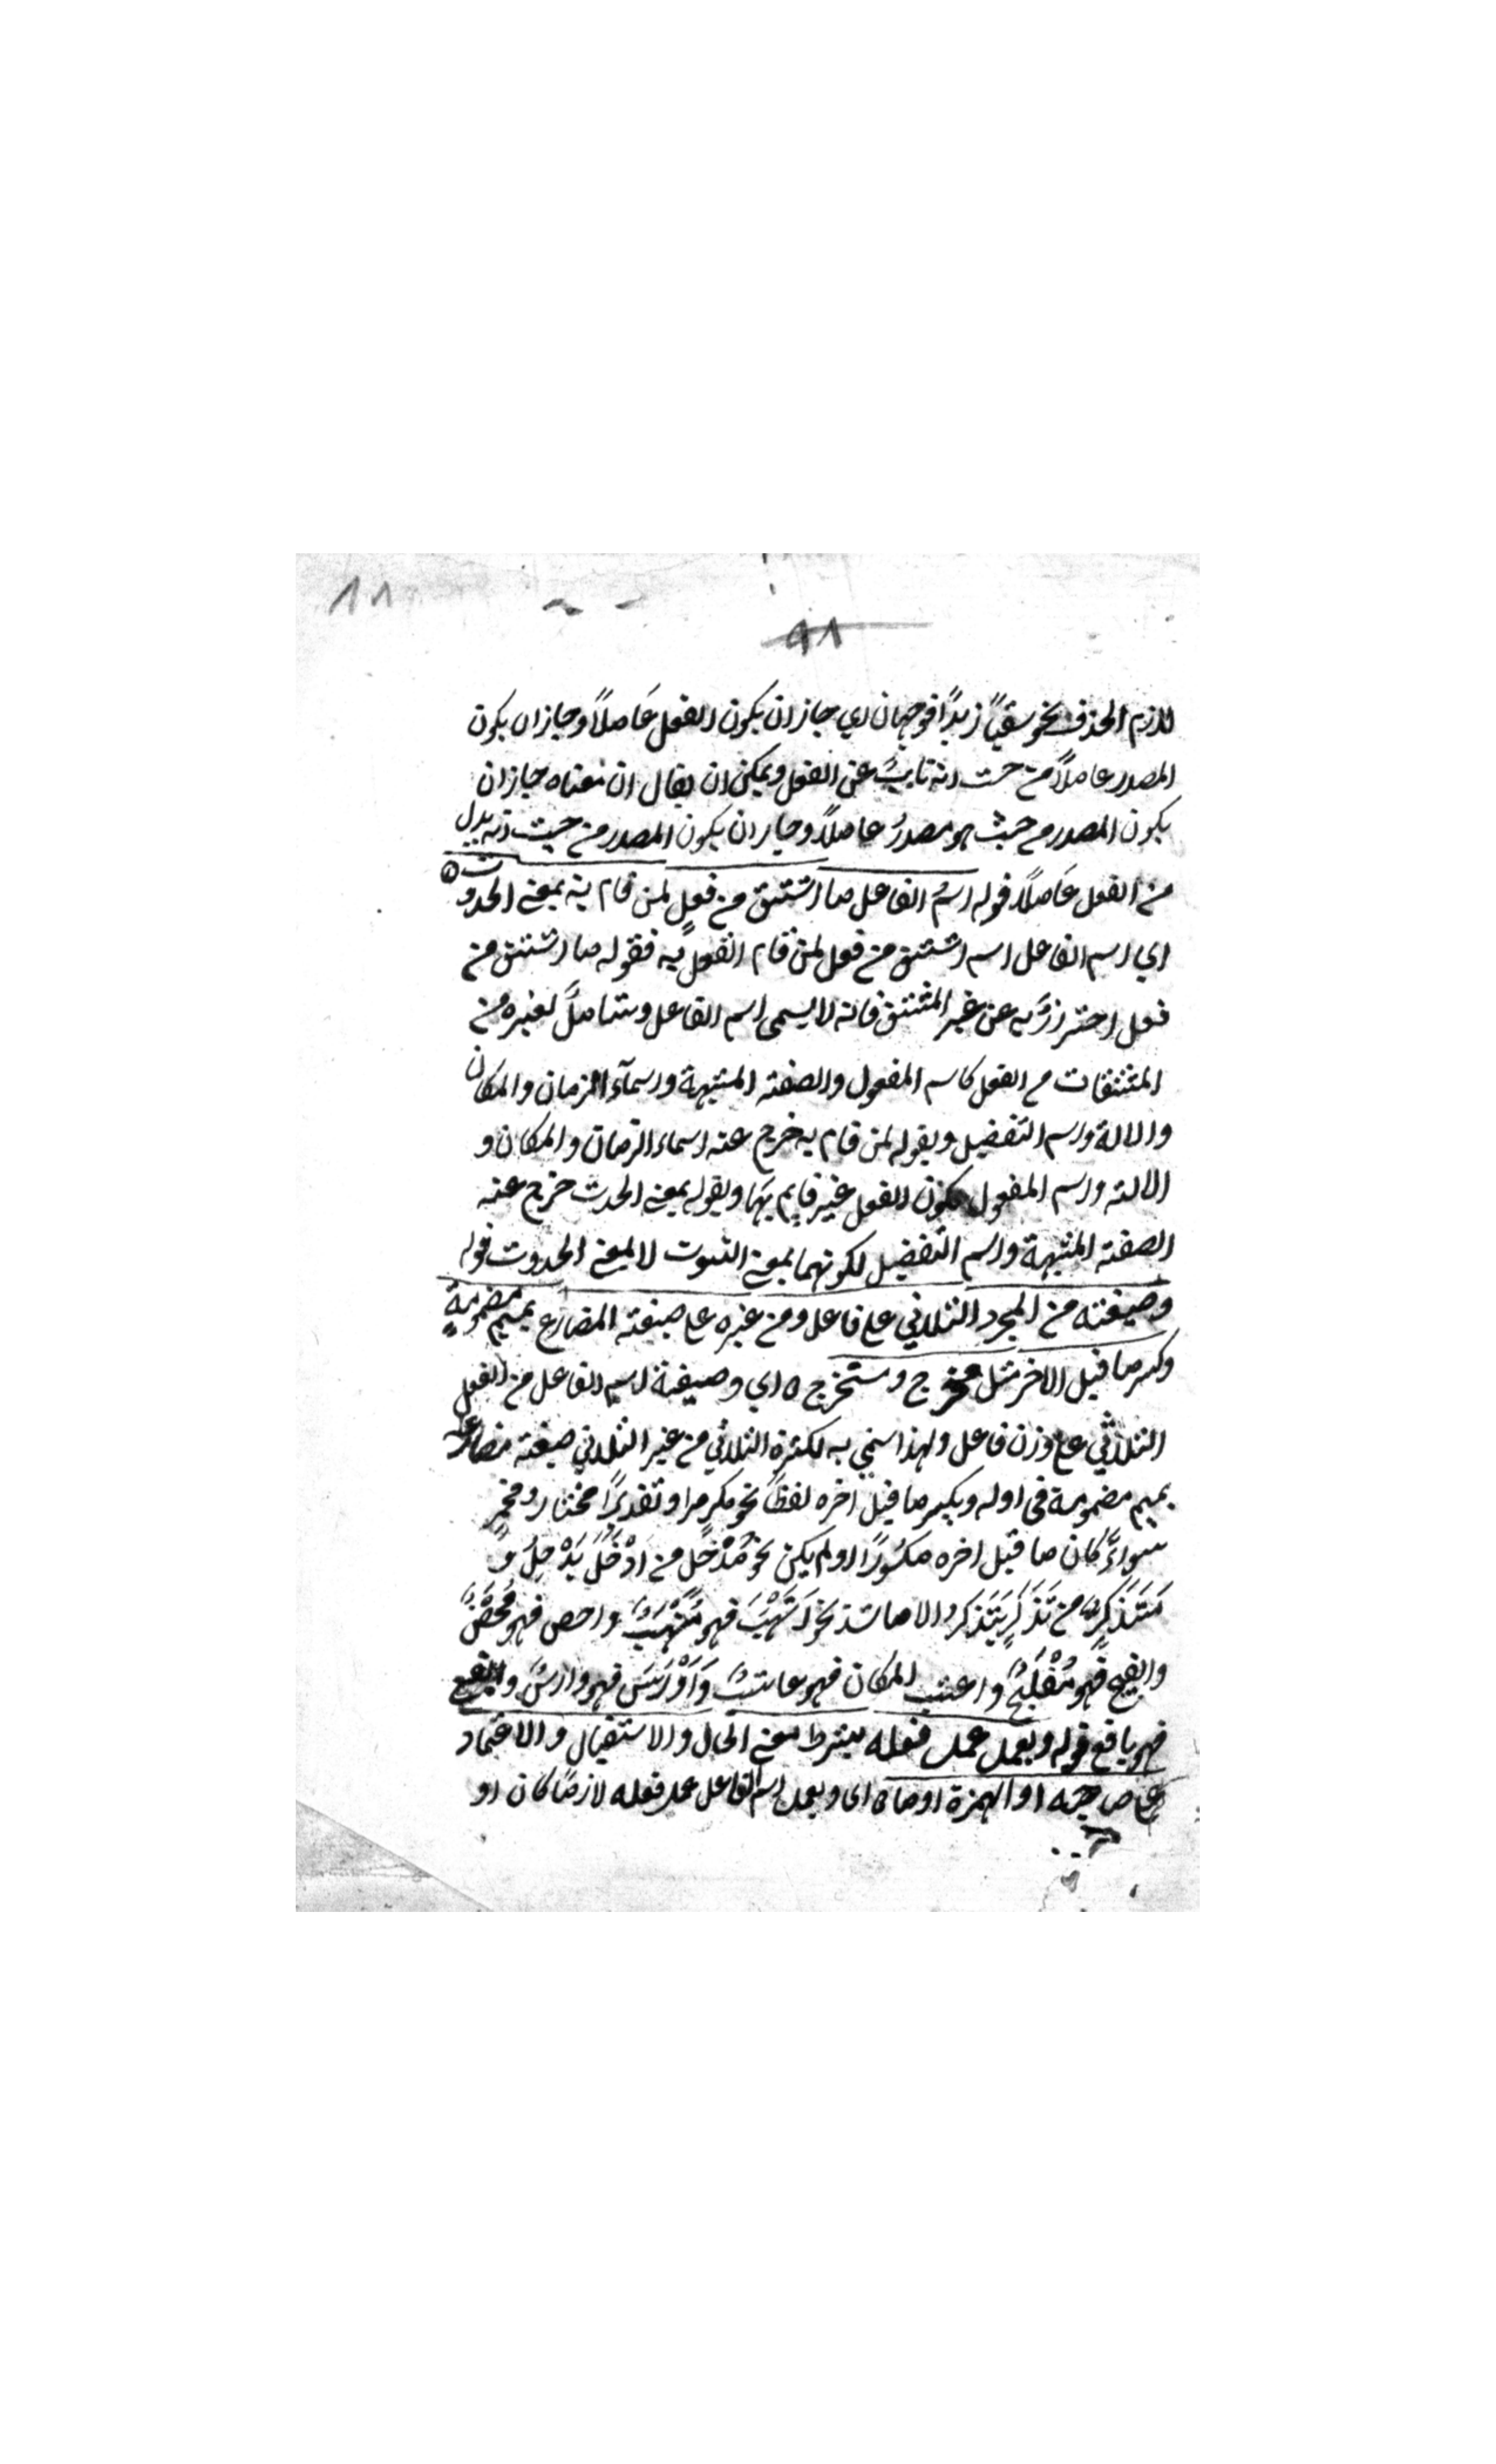 ١١
٩١
لازم الحذف نحو سقيًا زيدًا فوجهان اي جاز ان يكون الفعل عَاملاً وجاز ان يكون
المصدر عاملاً من حيث انه نايبٌ عن الفعل ويمكن ان يقال ان معناه جاز ان
يكون المصدر من حيث هو مصدرٌ عاملاً وجاز ان يكون المصدر من حيث انه بدل
من الفعل عَاملاً قوله اسمُ الفاعل ما اشتق من فعلٍ لمن قام به بمعنى الحدوث
اي اسم الفاعل اسم اشتق من فعل لمن قام الفعل به فقوله ما اشتق من
فعل احترز به عن غير المشتق فانه لا يسمى اسم الفاعل وشاملٌ لغيره من
المشتقات من الفعل كاسم المفعول والصفة المشبهة واسمآء الزمان والمكان
والالة واسم التفضيل وبقوله لمن قام به خرج عنه اسماء الزمان والمكان و
الالة واسم المفعول لكون الفعل غير قايم بهَا وبقوله بمعنى الحدث خرج عنه
الصفة المشبهة واسم التفضيل لكونهما بمعنى الثبوت لا بمعنى الحدوث قوله
وصيغته من المجرد الثلاثي على فاعل ومن غيره على صيغة المضارع بميم مضمومةٍ
وكسر ما قبل الاخر مثل مخرج ومستخرج ه اي وصيغة اسم الفاعل من الفعل
الثلاثي على وزن فاعل ولهذا سمي به لكثرة الثلاثي من غير الثلاثي صيغة مضارعه
بميم مضمومة في اوله وبكسر ما قبل اخره لفظًا نحو مكرم او تقديرًا مختار ومحمرٍ
سواءٌ كان ما قبل اخره مكسُورًا او لم يكن نحو مُدْخِل من ادْخَلَ يُدْخِلُ و
مُتَذَكِّرٍ من تَذَكَّر يَتَذكر الا ما شذ نحو اَسْهَبَ فهو مُسْهَبٌ واحصن فهو مُحْصَنٌ
والفج فهو مُفْلَجٌ واعشب المكان فهو عاشبٌ وَاَوْرَسَ فهو وارسٌ وايفع
فهو يافع قوله ويعمل عمل فعله بشرط معنى الحال والاستقبال والاعتماد
على صاحبه او الهمزة او ما ه اى ويعمل اسم الفاعل عمل فعله لازمًا كان او